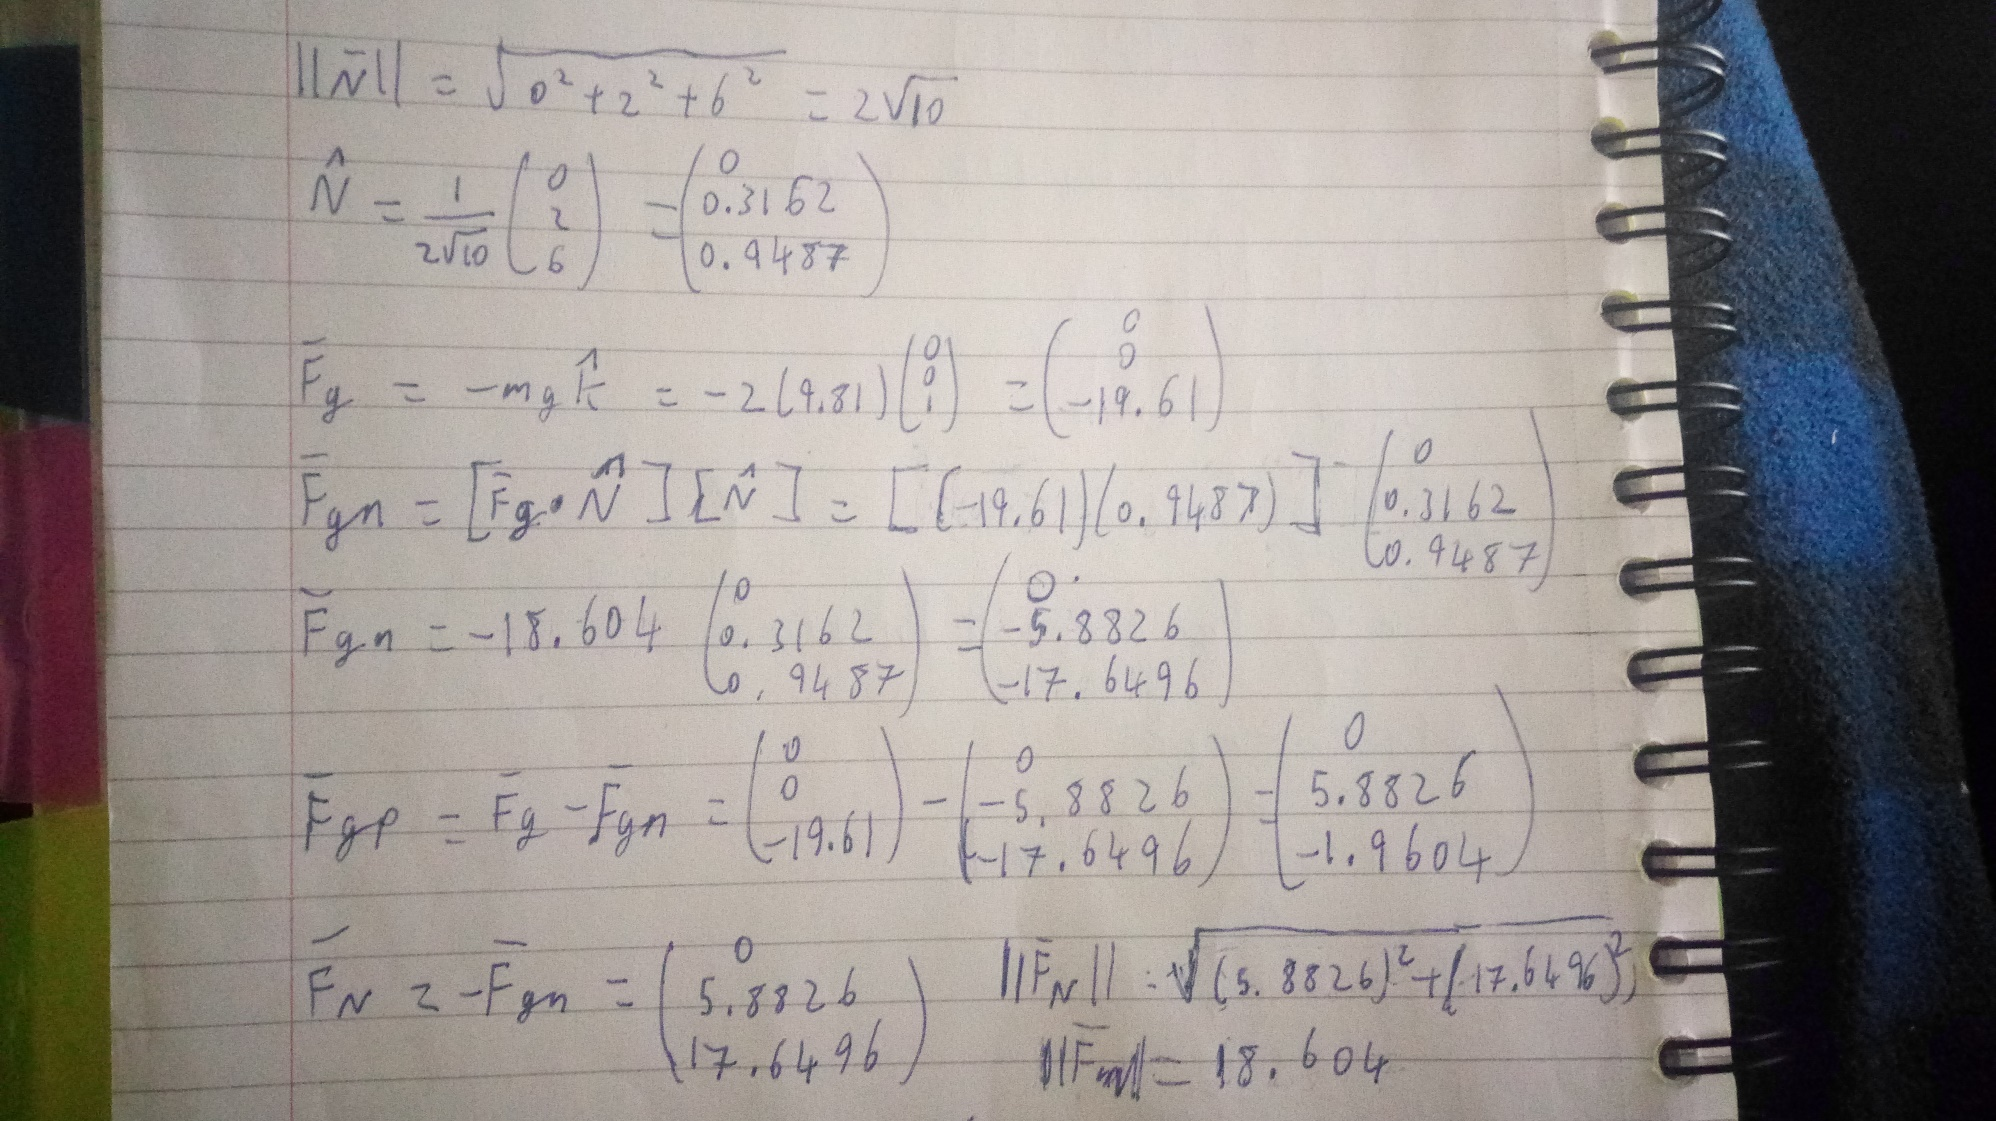 ||N̄|| = √(0² + 2² + 6²) = 2√10
N̂ = 1/(2√10) (0 2 6) = (0 0.3162 0.9487)
F̄g = -mg k̂ = -2(9.81) (0 0 1) = (0 0 -19.61)
F̄gn = [F̄g • N̂] [N̂] = [(-19.61)(0.9487)] (0 0.3162 0.9487)
F̄gn = -18.604 (0 0.3162 0.9487) = (0 -5.8826 -17.6496)
F̄gp = F̄g - F̄gn = (0 0 -19.61) - (0 -5.8826 -17.6496) = (0 5.8826 -1.9604)
F̄N = -F̄gn = (0 5.8826 17.6496) ||F̄N|| = √((5.8826)² + (17.6496)²)
||F̄|| = 18.604